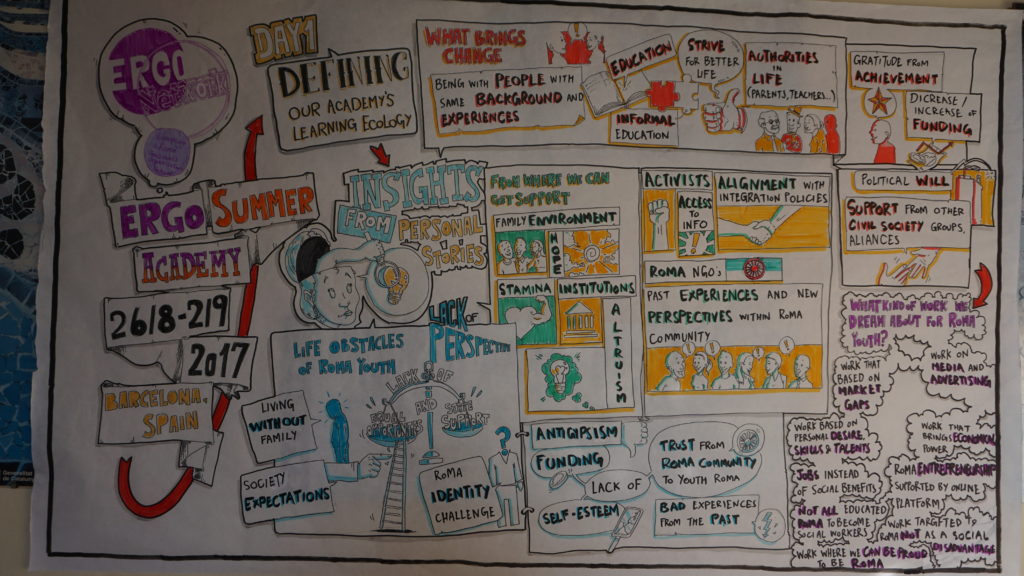 ERGO
Network
ERGO SUMMER
ACADEMY
26/8-2/9
2017
BARCELONA,
SPAIN
DAY 1
DEFINING
OUR ACADEMY'S
LEARNING ECOLOGY
WHAT BRINGS
CHANGE
BEING WITH PEOPLE WITH
SAME BACKGROUND AND
EXPERIENCES
EDUCATION
INFORMAL
EDUCATION
STRIVE
FOR BETTER
LIFE
AUTHORITIES
IN
LIFE
(PARENTS, TEACHERS...)
GRATITUDE FROM
ACHIEVEMENT
DICREASE /
INCREASE OF
FUNDING
POLITICAL WILL
SUPPORT FROM OTHER
CIVIL SOCIETY GROUPS,
ALIANCES
INSIGHTS
FROM PERSONAL
STORIES
FROM WHERE WE CAN
GOT SUPPORT
FAMILY ENVIRONMENT
HOPE
STAMINA
INSTITUTIONS
ALTRUISM
ACTIVISTS
ACCESS
TO INFO
ALIGNMENT WITH
INTEGRATION POLICIES
ROMA NGO'S
PAST EXPERIENCES AND NEW
PERSPECTIVES WITHIN ROMA
COMMUNITY
LIFE OBSTACLES
OF ROMA YOUTH
LACK OF
PERSPECTIVE
LIVING
WITHOUT
FAMILY
SOCIETY
EXPECTATIONS
LACK OF
EQUAL
AND STATE
SUPPORT
ROMA
IDENTITY
CHALLENGE
?
ANTIGIPSISM
FUNDING
LACK OF
SELF-ESTEEM
TRUST FROM
ROMA COMMUNITY
TO YOUTH ROMA
BAD EXPERIENCES
FROM THE PAST
WHAT KIND OF WORK WE
DREAM ABOUT FOR ROMA
YOUTH?
WORK THAT
BASED ON
MARKET
GAPS
WORK ON
MEDIA AND
ADVERTISING
WORK BASED ON
PERSONAL DESIRE,
SKILLS & TALENTS
WORK THAT
BRINGS ECONOMICAL
POWER
JOBS INSTEAD
OF SOCIAL BENEFITS
ROMA ENTREPRENEURSHIP
SUPPORTED BY ONLINE
PLATFORM
NOT ALL EDUCATED
ROMA TO BECOME
SOCIAL WORKERS
WORK TARGETED TO
ROMA NOT AS A SOCIAL
DISADVANTAGE
WORK WHERE WE CAN BE PROUD
TO BE ROMA